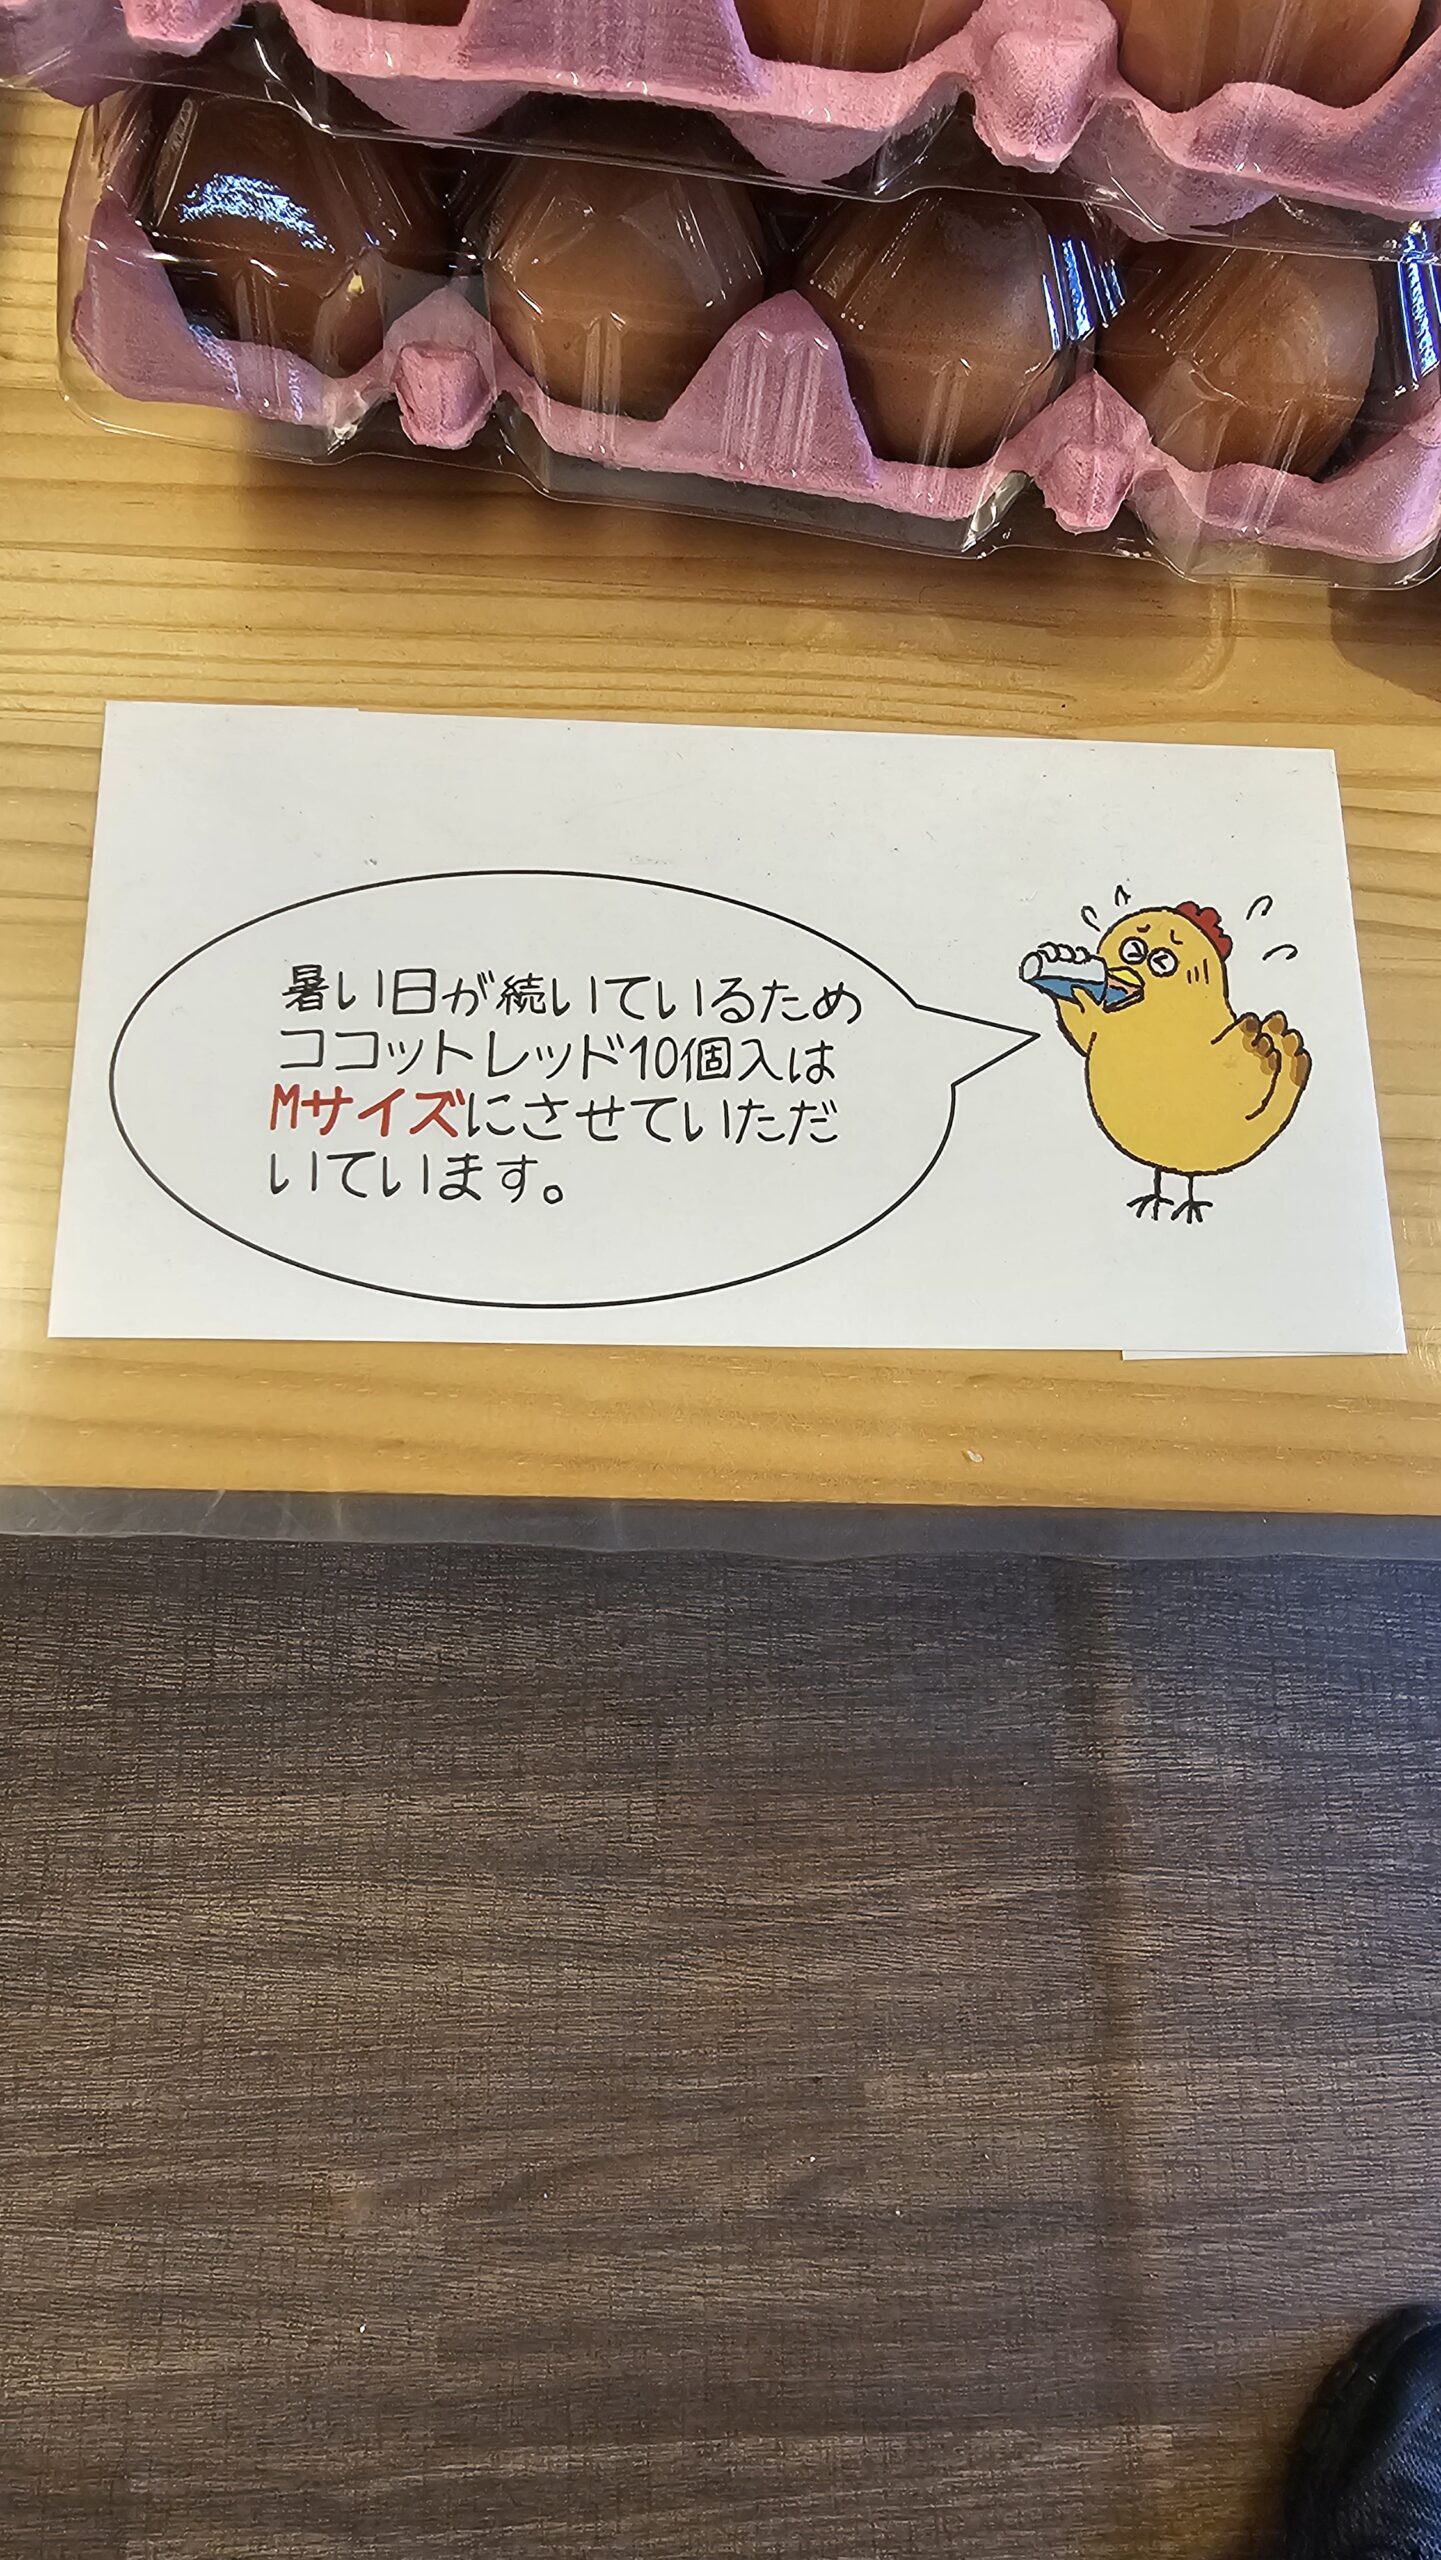 暑い日が続いているため
ココットレッド10個入は
Mサイズにさせていただ
いています。